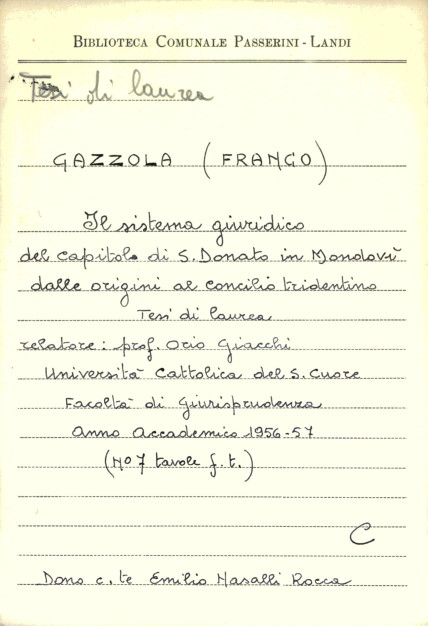 BIBLIOTECA COMUNALE PASSERINI - LANDI
Tesi di laurea
GAZZOLA (FRANCO)
Il sistema giuridico
del capitolo di S. Donato in Mondovì
dalle origini al concilio tridentino
Tesi di laurea
relatore: prof. Orio Giacchi
Università Cattolica del S. Cuore
Facoltà di Giurisprudenza
Anno Accademico 1956-57
(No 7 tavole f. t.)
C
Dono c.te Emilio Nasalli Rocca